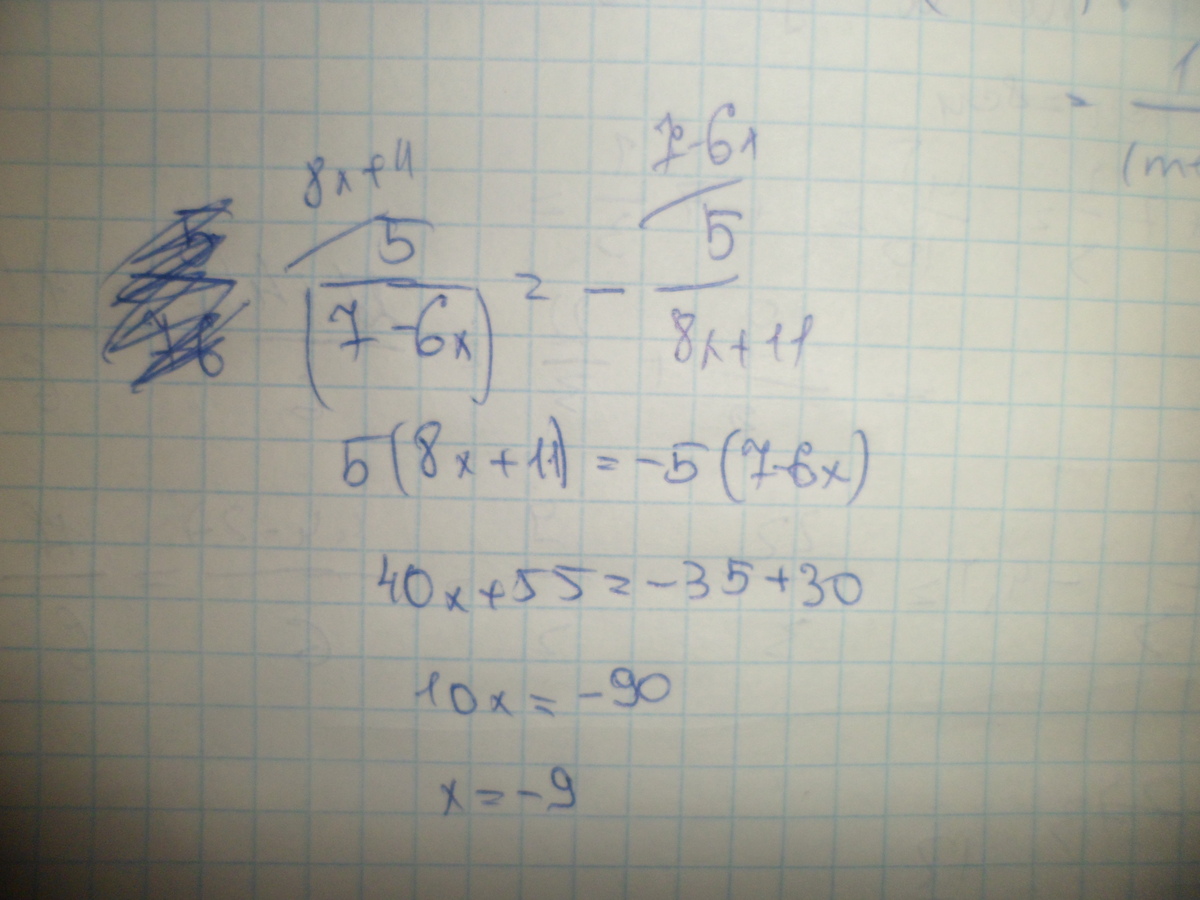 8x+11 7-6x
5/(7-6x) = - 5/8x+11
5(8x+11) = -5(7-6x)
40x+55=-35+30
10x = -90
x = -9
1
(m